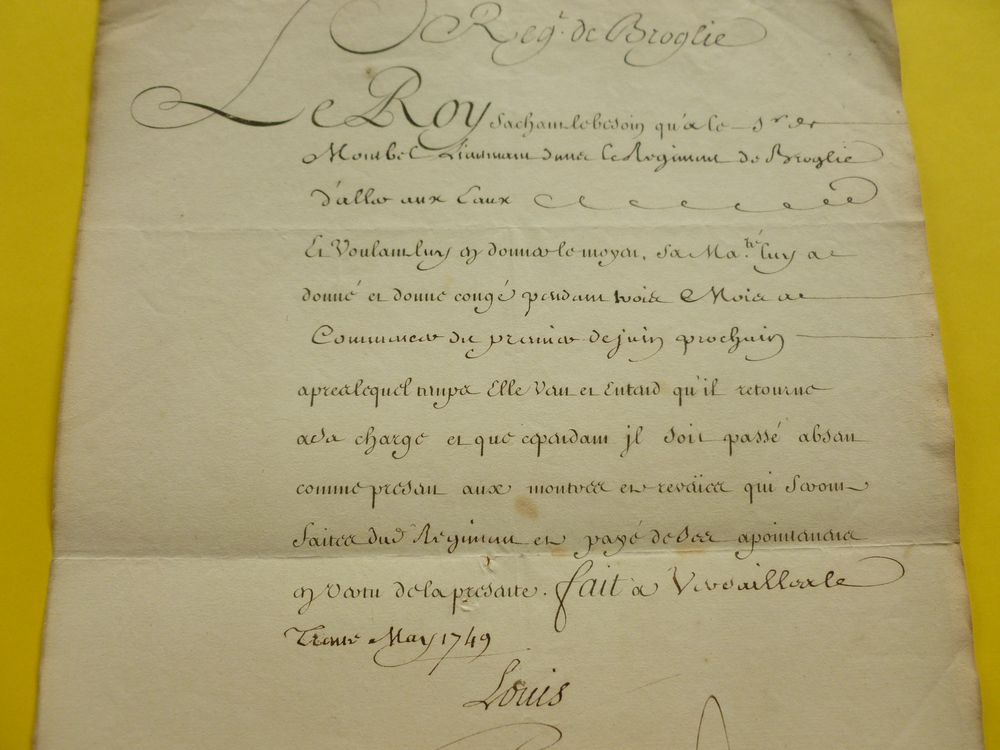 Reg.t de Broglie
Le Roy sachant le besoin qu'a le Sr. de
Montbel Lieutenant dans le Regiment de Broglie
d'aller aux Eaux
Et Voulant luy en donner le moyen, Sa Ma.té luy a
donné et donne congé pendant trois Mois a
Commencer du premier de juin prochain
apres lequel temps Elle Veut et Entend qu'il retourne
a sa charge et que cependant jl soit passé absent
comme present aux montres et revües qui seront
faites dud. Regiment et payé de ses apointemens
en vertu de la presente. fait a Versailles le
Trente May 1749
Louis